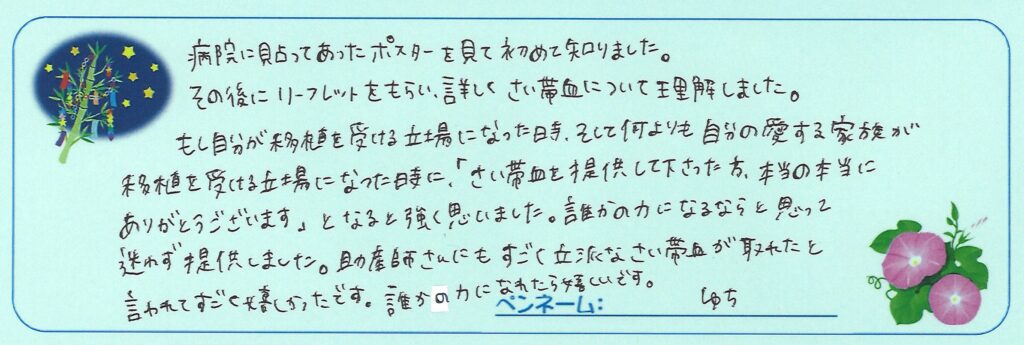 病院に貼ってあったポスターを見て初めて知りました。
その後にリーフレットをもらい、詳しくさい帯血について理解しました。
もし自分が移植を受ける立場になった時、そして何よりも自分の愛する家族が
移植を受ける立場になった時に、「さい帯血を提供して下さった方、本当の本当に
ありがとうございます」となると強く思いました。誰かの力になるならと思って
迷わず提供しました。助産師さんにもすごく立派なさい帯血が取れたと
言われてすごく嬉しかったです。誰かの力になれたら嬉しいです。
ペンネーム: しゅち